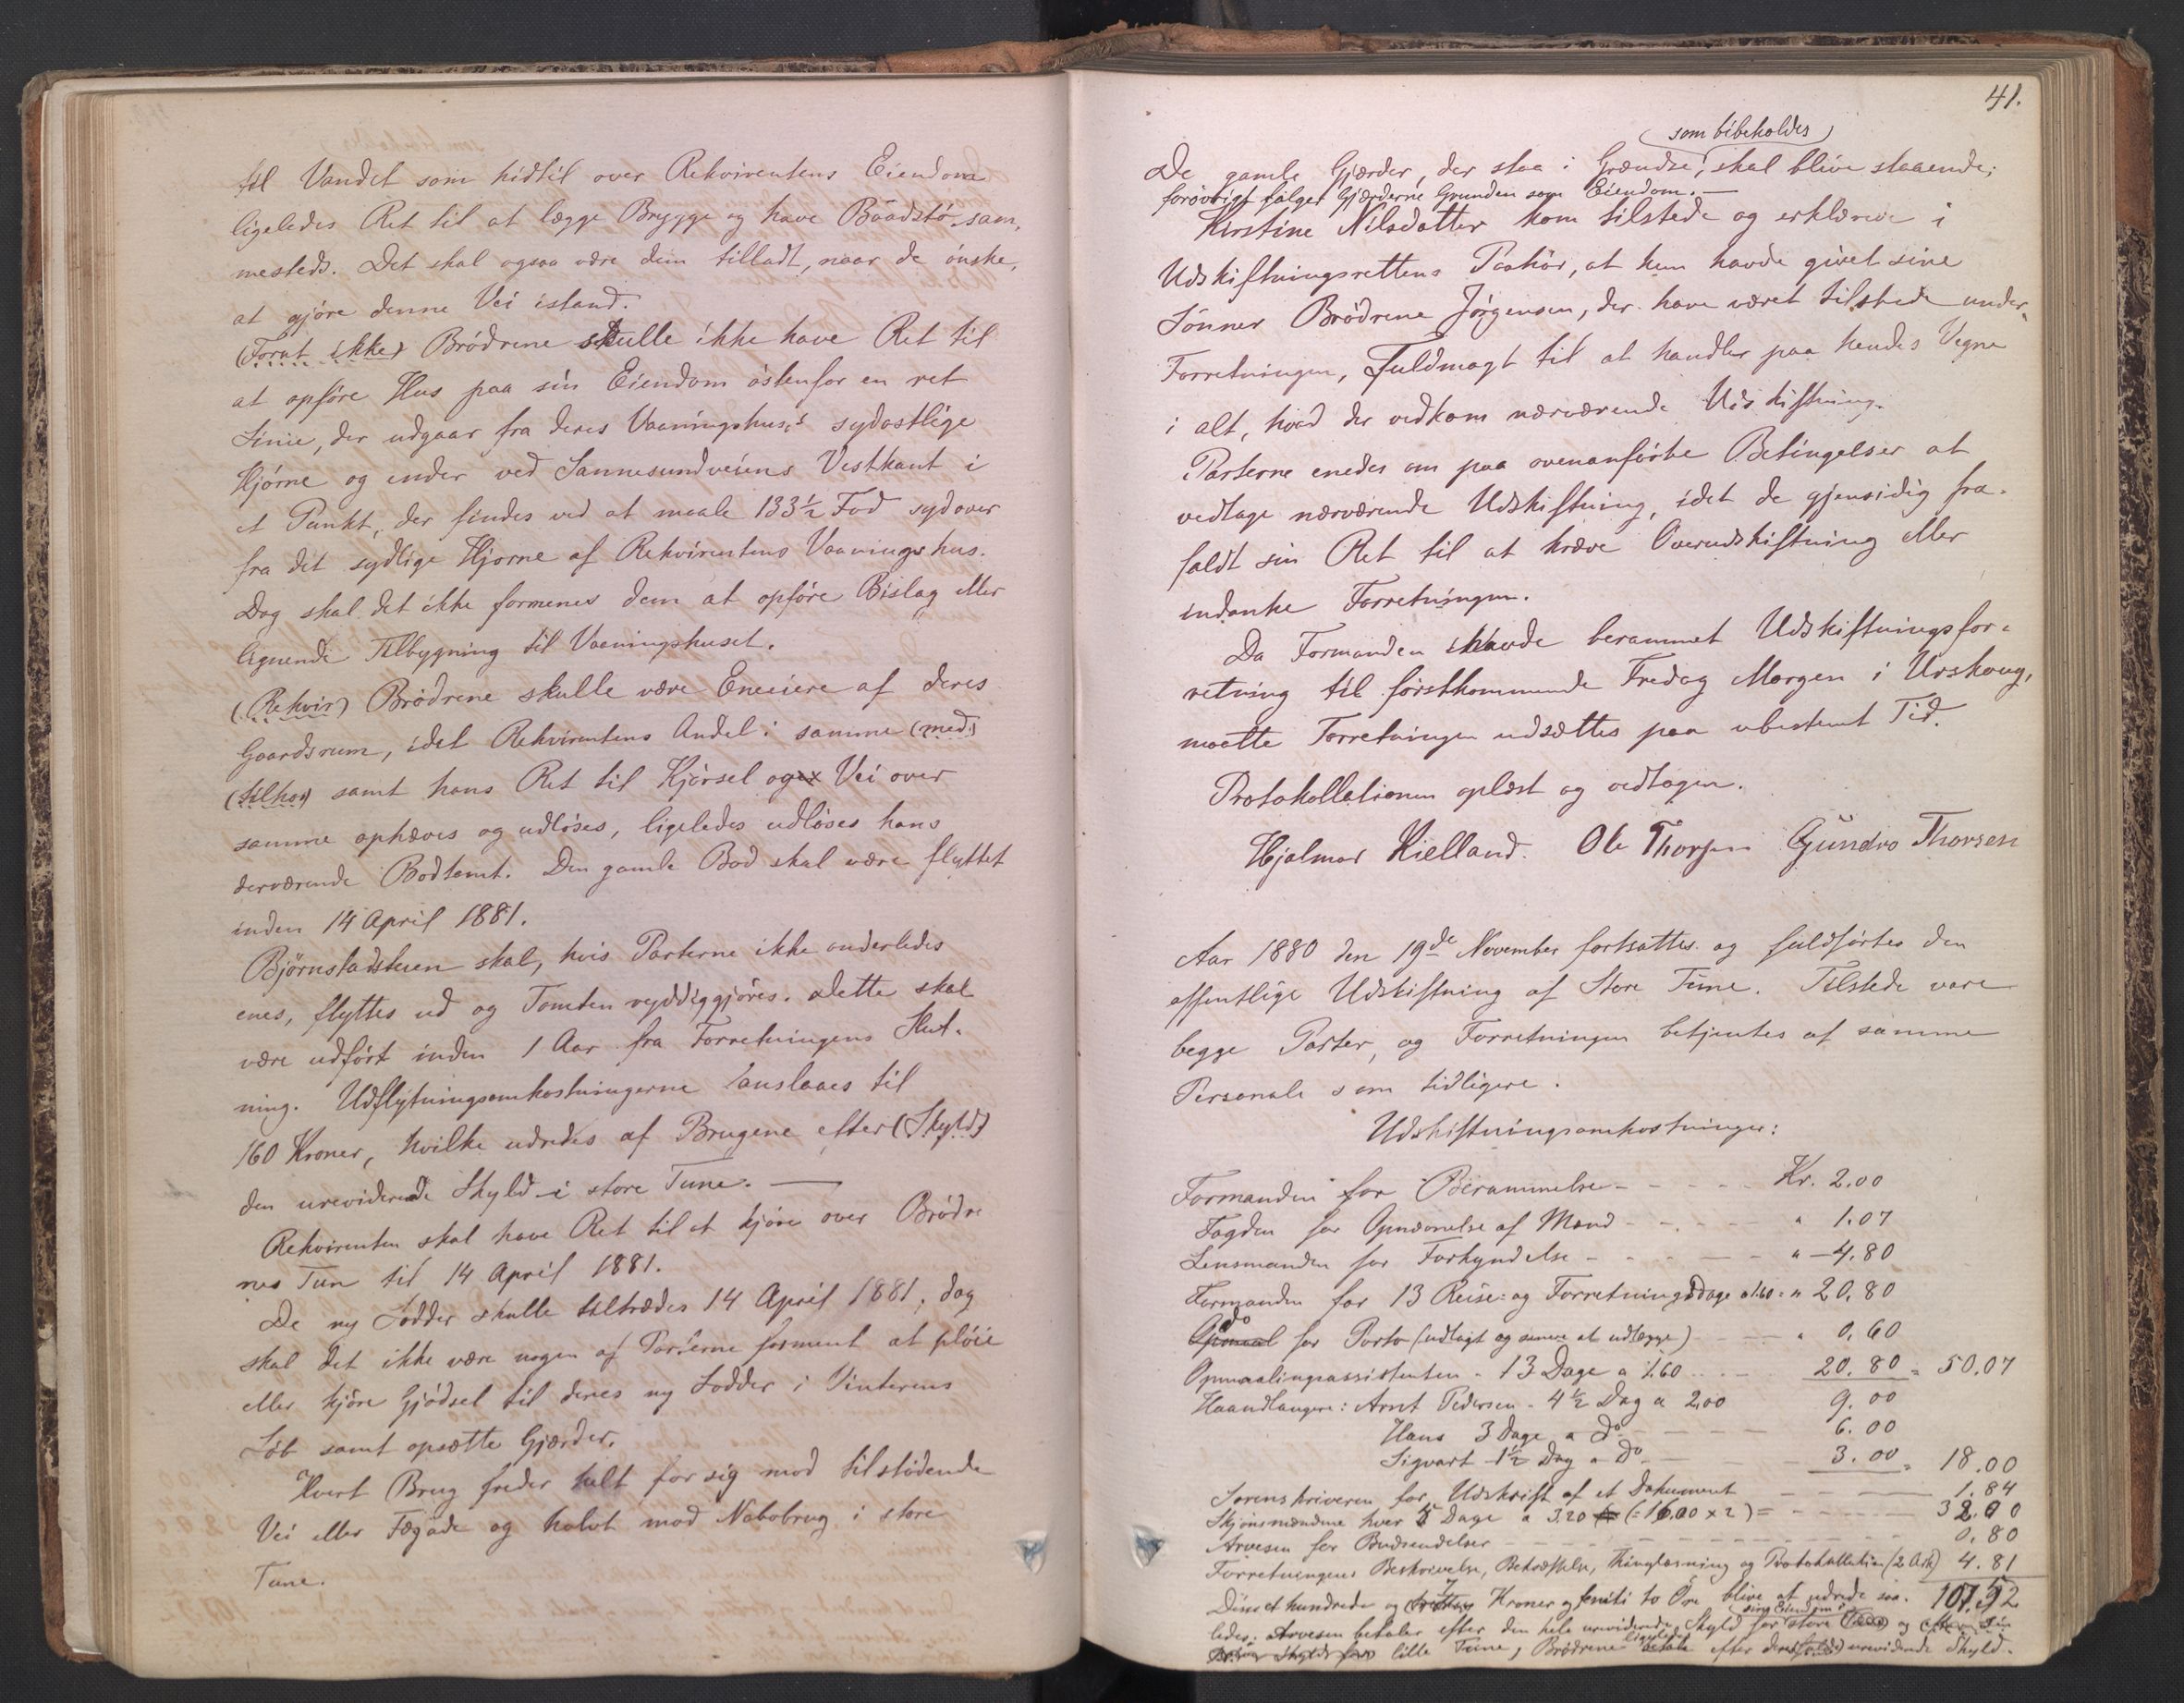 til Vandet som hidtil over Rekvirentens Eiendom
ligeledes Ret til at lægge Brygge og have Baadstö sam-
mesteds. Det skal ogsaa være dem tilladt, naar de önske,
at gjöre denne Vei istand.
(Forut ikke) Brödrene skulle ikke have Ret til
at opföre Hus paa sin Eiendom östenfor en ret
Linie, der udgaar fra deres Vaaningshus's sydostlige
Hjörne og ender ved Sannesundveiens Vestkant i
et Punkt, der findes ved at maale 133½ Fod sydover
fra det sydlige Hjörne af Rekvirentens Vaaningshus.
Dog skal det ikke formenes dem at opföre Bislag eller
lignende Tilbygning til Vaaningshuset.
(Rekvir) Brödrene skulle være Eneeiere af deres
Gaardsrum, idet Rekvirentens Andel i samme (med)
(tilhö) samt hans Ret til Kjörsel og Vei over
samme ophæves og udlöses, ligeledes udlöses hans
derværende Bodtomt. Den gamle Bod skal være flyttet
inden 14 April 1881.
Björnstadstuen skal, hvis Parterne ikke anderledes
enes, flyttes ud og Tomten ryddiggjöres. Dette skal
være udfört inden 1 Aar fra Forretningens Slut-
ning. Udflytningsomkostningerne anslaaes til
160 Kroner, hvilke udredes af Brugene efter (Skyld)
den ureviderede Skyld i store Tune. —
Rekvirenten skal have Ret til at kjöre over Brödre
nes Tun til 14 April 1881.
De ny Lodder skulle tiltrædes 14 April 1881, dog
skal det ikke være nogen af Parterne forment at plöie
eller kjöre Gjödsel til deres ny Lodder i Vinterens
Löb samt opsætte Gjærder.
Hvert Brug freder helt for sig mod tilstödende
Vei eller Fægade og halvt mod Nabobrug i store
Tune.
41.
som bibeholdes
De gamle Gjærder, der staa i Grændse, skal blive staaende;
forövrigt fölger Gjærderne Grunden som Eiendom. —
Kirstine Nilsdatter kom tilstede og erklærede i
Udskiftningsrettens Paahör, at hun havde givet sine
Sönner Brödrene Jörgensen, der have været tilstede under
Forretningen, Fuldmagt til at handle paa hendes Vegne
i alt, hvad der vedkom nærværende Udskiftning.
Parterne enedes om paa ovenanförte Betingelser at
vedtage nærværende Udskiftning, idet de gjensidig fra-
faldt sin Ret til at kræve Overudskiftning eller
indanke Forretningen.
Da Formanden havde berammet Udskiftningsfor-
retning til förstkommende Fredag Morgen i Urskoug,
maatte Forretningen udsættes paa ubestemt Tid.
Protokollationen oplæst og vedtagen.
Hjalmar Kielland. Ole Thorsen Gundro Thorsen
Aar 1880 den 19de November fortsattes og fuldförtes den
offentlige Udskiftning af Store Tune. Tilstede vare
begge Parter, og Forretningen betjentes af samme
Personale som tidligere.
Udskiftningsomkostninger:
Formanden for Berammelse - - - - - Kr. 2.00
Fogden for Opnævnelse af Mænd - - - - " 1.07
Lensmanden for Forkyndelse - - - - - " 4.80
Formanden for 13 Reise- og Forretningsdage a 1.60 = " 20.80
do for Porto (udlagt og senere at udlægge) - - " 0.60
Opmaalingsassistenten - 13 Dage a 1.60 - - 20.80 = 50.07
Haandlangere: Arnt Pedersen - 4½ Dag a 2,00 9.00
Hans 3 Dage a do - - - 6.00
Sigvart 1½ Dag a Do - - - 3.00 = 18.00
Sorenskriveren for Udskrift af et Dokument - - - 1.84
Skjönsmændene hver 5 Dage a 3.20 (= 16.00 x 2) = - - - 32.00
Arvesen for Budsendelser - - - 0.80
Forretningens Beskrivelse, Bekræftelse, Thinglæsning og Protokollation (2 Ark) 4.81
107.52
Disse et hundrede og 7 Kroner og femti to Öre blive at udrede saa-
sin Eiendom i
ledes: Arvesen betaler efter den hele ureviderede Skyld for store (Tune) og
ligeledes
lille Tune, Brödrene betale efter deres ureviderede Skyld.